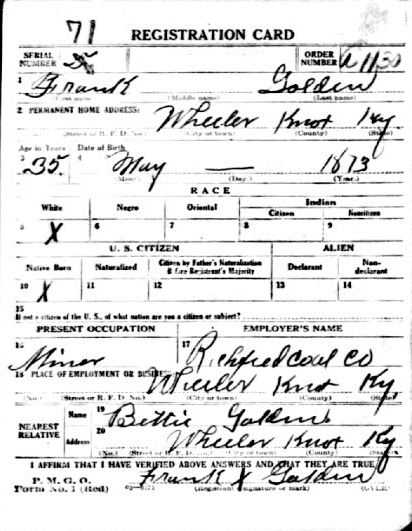 71
REGISTRATION CARD
SERIAL NUMBER
ORDER NUMBER A 1130
1 Frank Golden
(First name) (Middle name) (Last name)
2 PERMANENT HOME ADDRESS:
Wheeler Knot Ky.
(Street or R. F. D. No.) (City or town) (County) (State)
Age in Years Date of Birth
3 35. 4 May — 1873
(Month.) (Day.) (Year.)
RACE
White Negro Oriental Indian
Citizen Noncitizen
5 X 6 7 8 9
U. S. CITIZEN ALIEN
Native Born Naturalized Citizen by Father's Naturalization Before Registrant's Majority Declarant Non-declarant
10 X 11 12 13 14
15
If not a citizen of the U. S., of what nation are you a citizen or subject?
PRESENT OCCUPATION EMPLOYER'S NAME
16 Miner 17 Richfred coal co
18 PLACE OF EMPLOYMENT OR BUSINESS
Wheeler Knot Ky.
(No.) (Street or R. F. D. No.) (City or town) (County) (State)
NEAREST RELATIVE Name 19 Bettie Golden
Address 20 Wheeler Knot Ky
(No.) (Street or R. F. D. No.) (City or town) (County) (State)
I AFFIRM THAT I HAVE VERIFIED ABOVE ANSWERS AND THAT THEY ARE TRUE
P. M. G. O.
Form No. 1 (Red) Frank X Golden
(Registrant's signature or mark) (OVER)